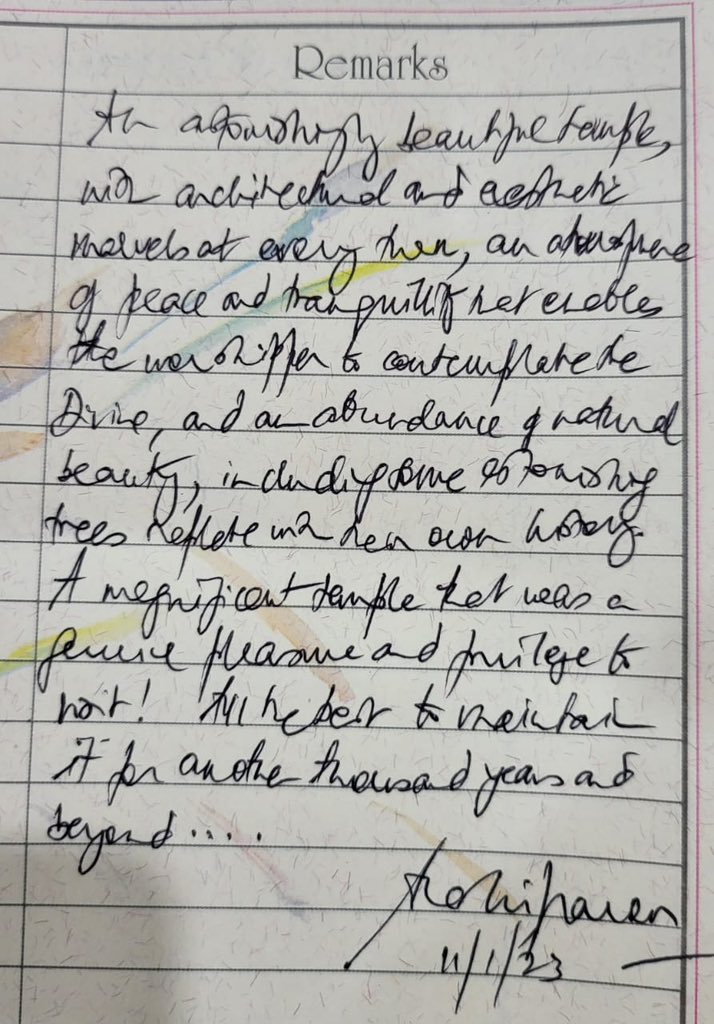 Remarks
An astonishingly beautiful temple,
with architectural and aesthetic
marvels at every turn, an atmosphere
of peace and tranquillity that enables
the worshipper to contemplate the
Divine, and an abundance of natural
beauty, including some astonishing
trees replete with their own history.
A magnificent temple that was a
genuine pleasure and privilege to
visit! All the best to maintain
it for another thousand years and
beyond....
11/1/23